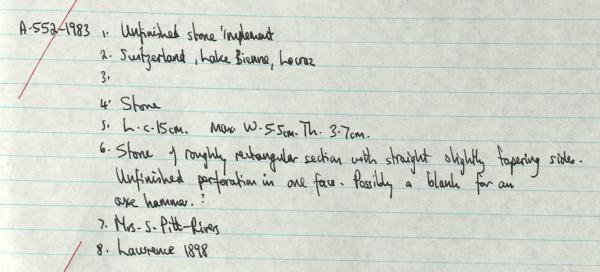 A.552-1983 1. Unfinished stone implement
2. Switzerland, Lake Bienne, Locraz
3.
4. Stone
5. L. c. 15cm. Max W. 5.5cm. Th. 3.7cm.
6. Stone of roughly rectangular section with straight slightly tapering sides.
Unfinished perforation in one face. Possibly a blank for an
axe hammer.?
7. Mrs. S. Pitt-Rivers
8. Lawrence 1898